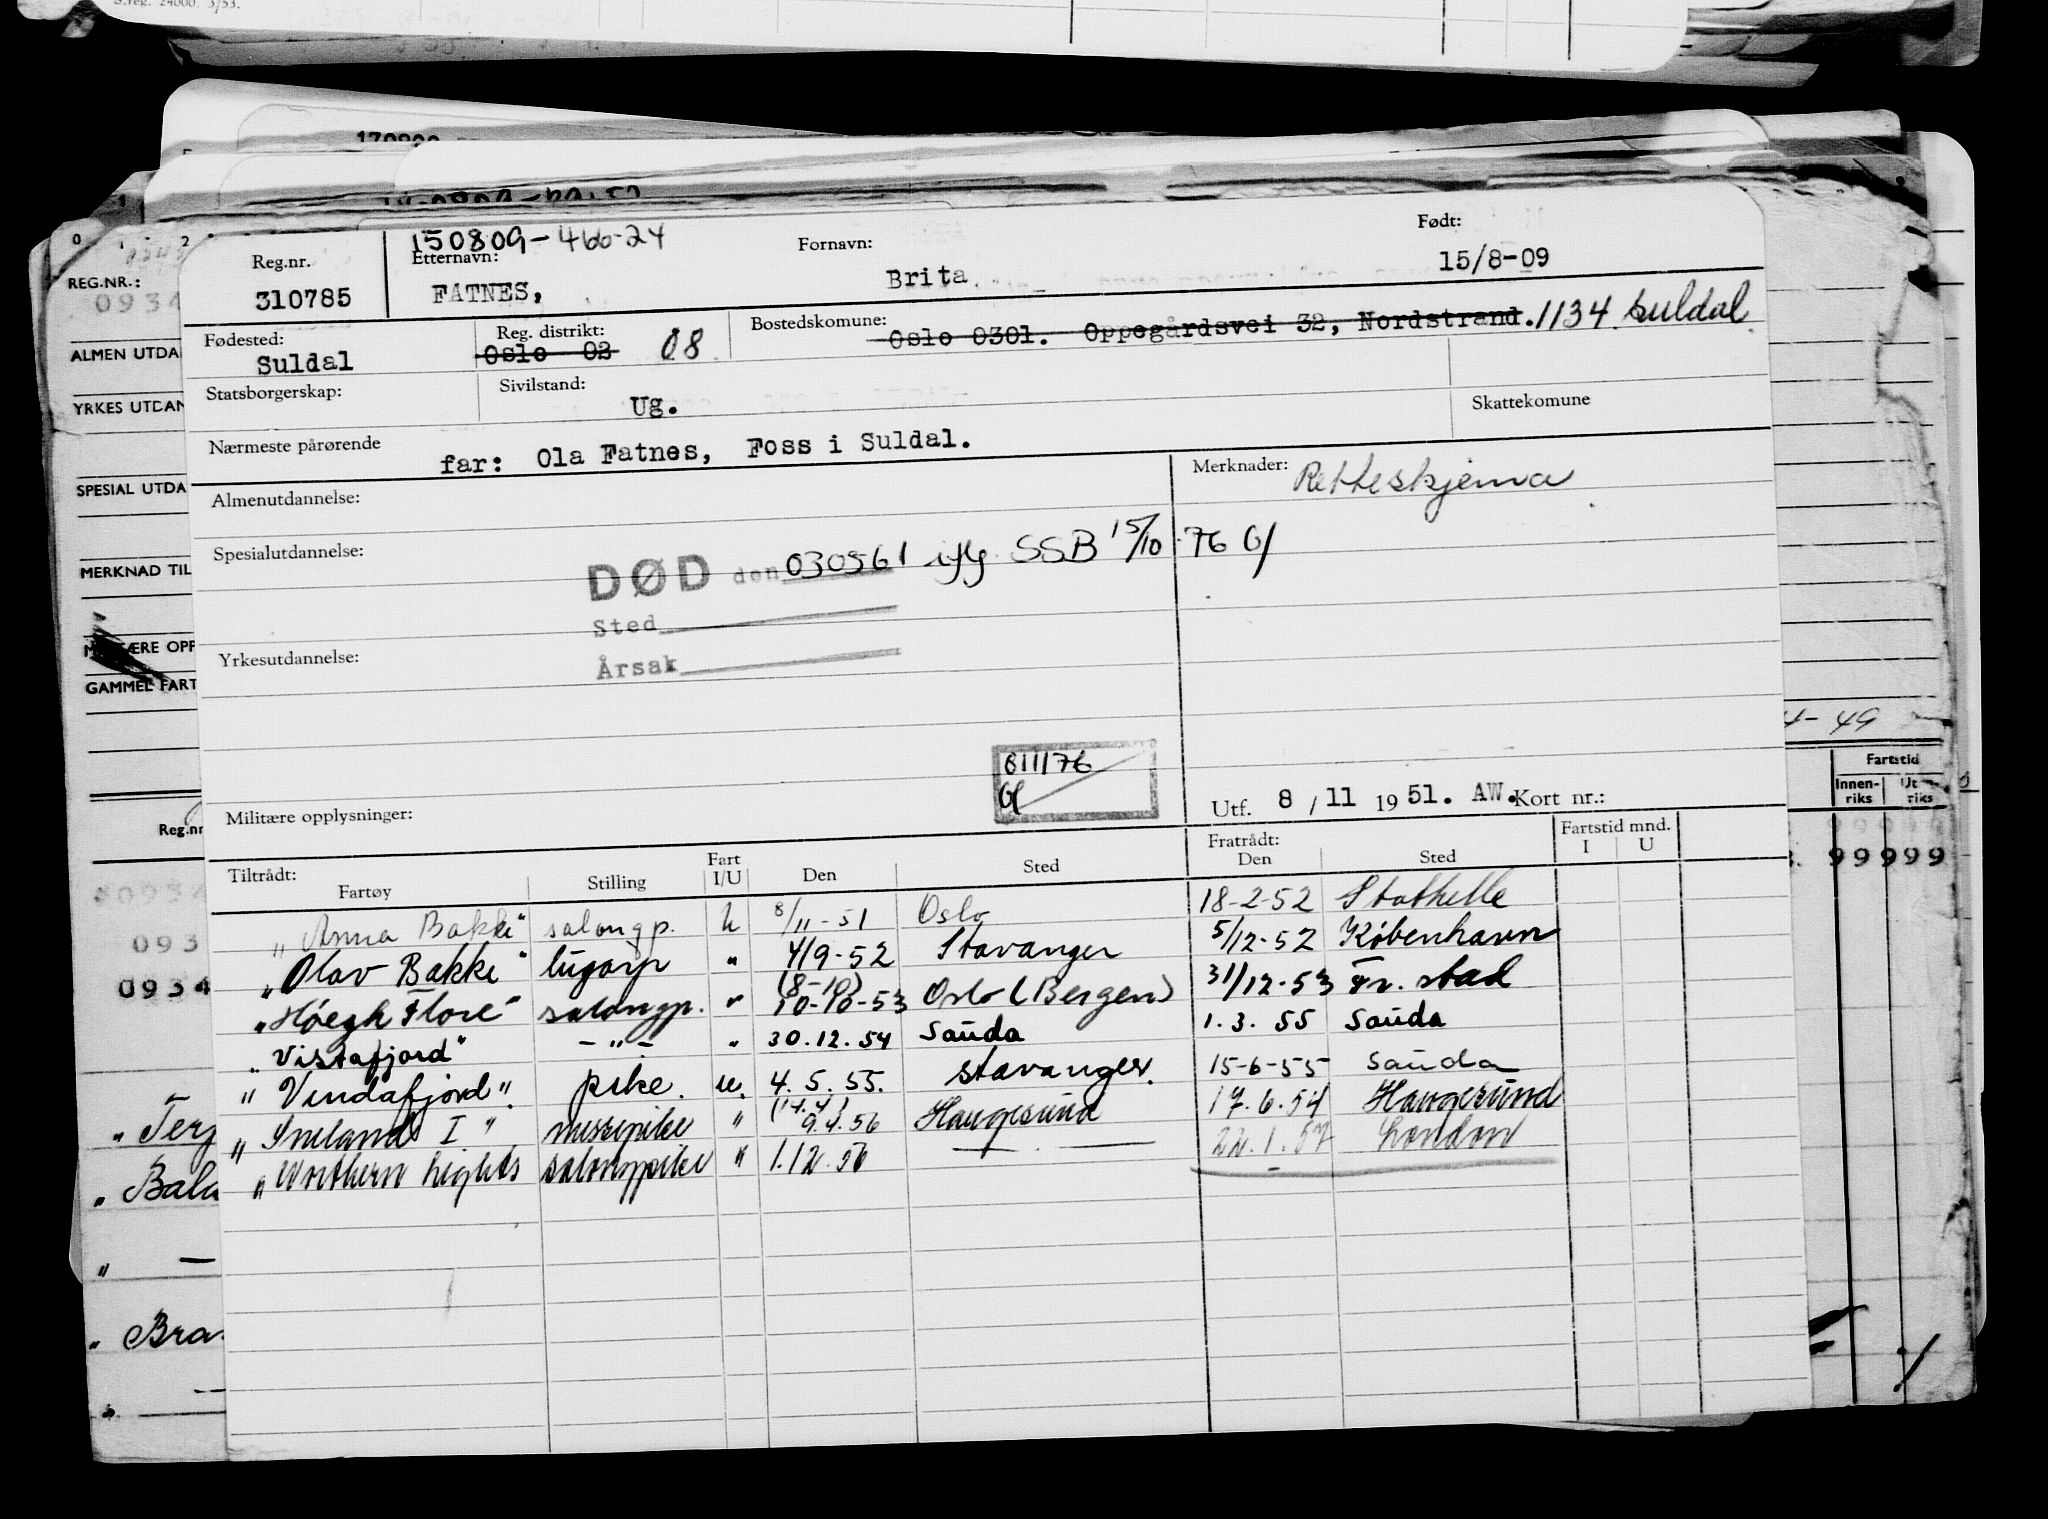 S.reg. 24000. 3/53.
170809
0 1 2
REG.NR.:
0934
ALMEN UTDA
YRKES UTDAN
SPESIAL UTDA
MERKNAD TIL
ÆRE OPP
GAMMEL FART
Reg.nr
0934
093
0934
„ Terg
„ Bala
„ —
„ Bra
4-49
Fartstid
Innen-riks Ut riks
99999
150809-466-24
Reg.nr. Etternavn: Fornavn: Født:
310785 FATNES, Brita 15/8-09
Fødested: Reg. distrikt: Bostedskomune:
Suldal Oslo 02 08 Oslo 0301. Oppegårdsvei 32, Nordstrand. 1134 Suldal
Statsborgerskap: Sivilstand: Ug. Skattekomune
Nærmeste pårørende far: Ola Fatnes, Foss i Suldal.
Almenutdannelse: Merknader: Retteskjema
Spesialutdannelse:
DØD den 030561 iflg SSB 15/10 76 Gl
Sted
Yrkesutdannelse:
Årsak
811/76
Gl
Militære opplysninger: Utf. 8 / 11 19 51. AW. Kort nr.:
Tiltrådt: Fratrådt: Fartstid mnd.
Fartøy Stilling Fart I/U Den Sted Den Sted I U
„Anna Bakke" salongp. U 8/11-51 Oslo 18-2-52 Stathelle
„Olav Bakke" lugarp " 4/9-52 Stavanger 5/12-52 København
(8-10)
„Høegh Flore" salongp. " 10-10-53 Oslo (Bergen) 31/12-53 Fr. stad
„Vistafjord" -"- " 30.12.54 Sauda 1.3.55 Sauda
" Vindafjord" pike. u. 4.5.55. Stavanger. 15-6-55 Sauda
(14.4)
„ Imelands I " messepike " 9.4.56 Haugesund 17.6.54 Haugesund
„Northern Lights salongpike " 1.12.56 — — 22.1.57 London